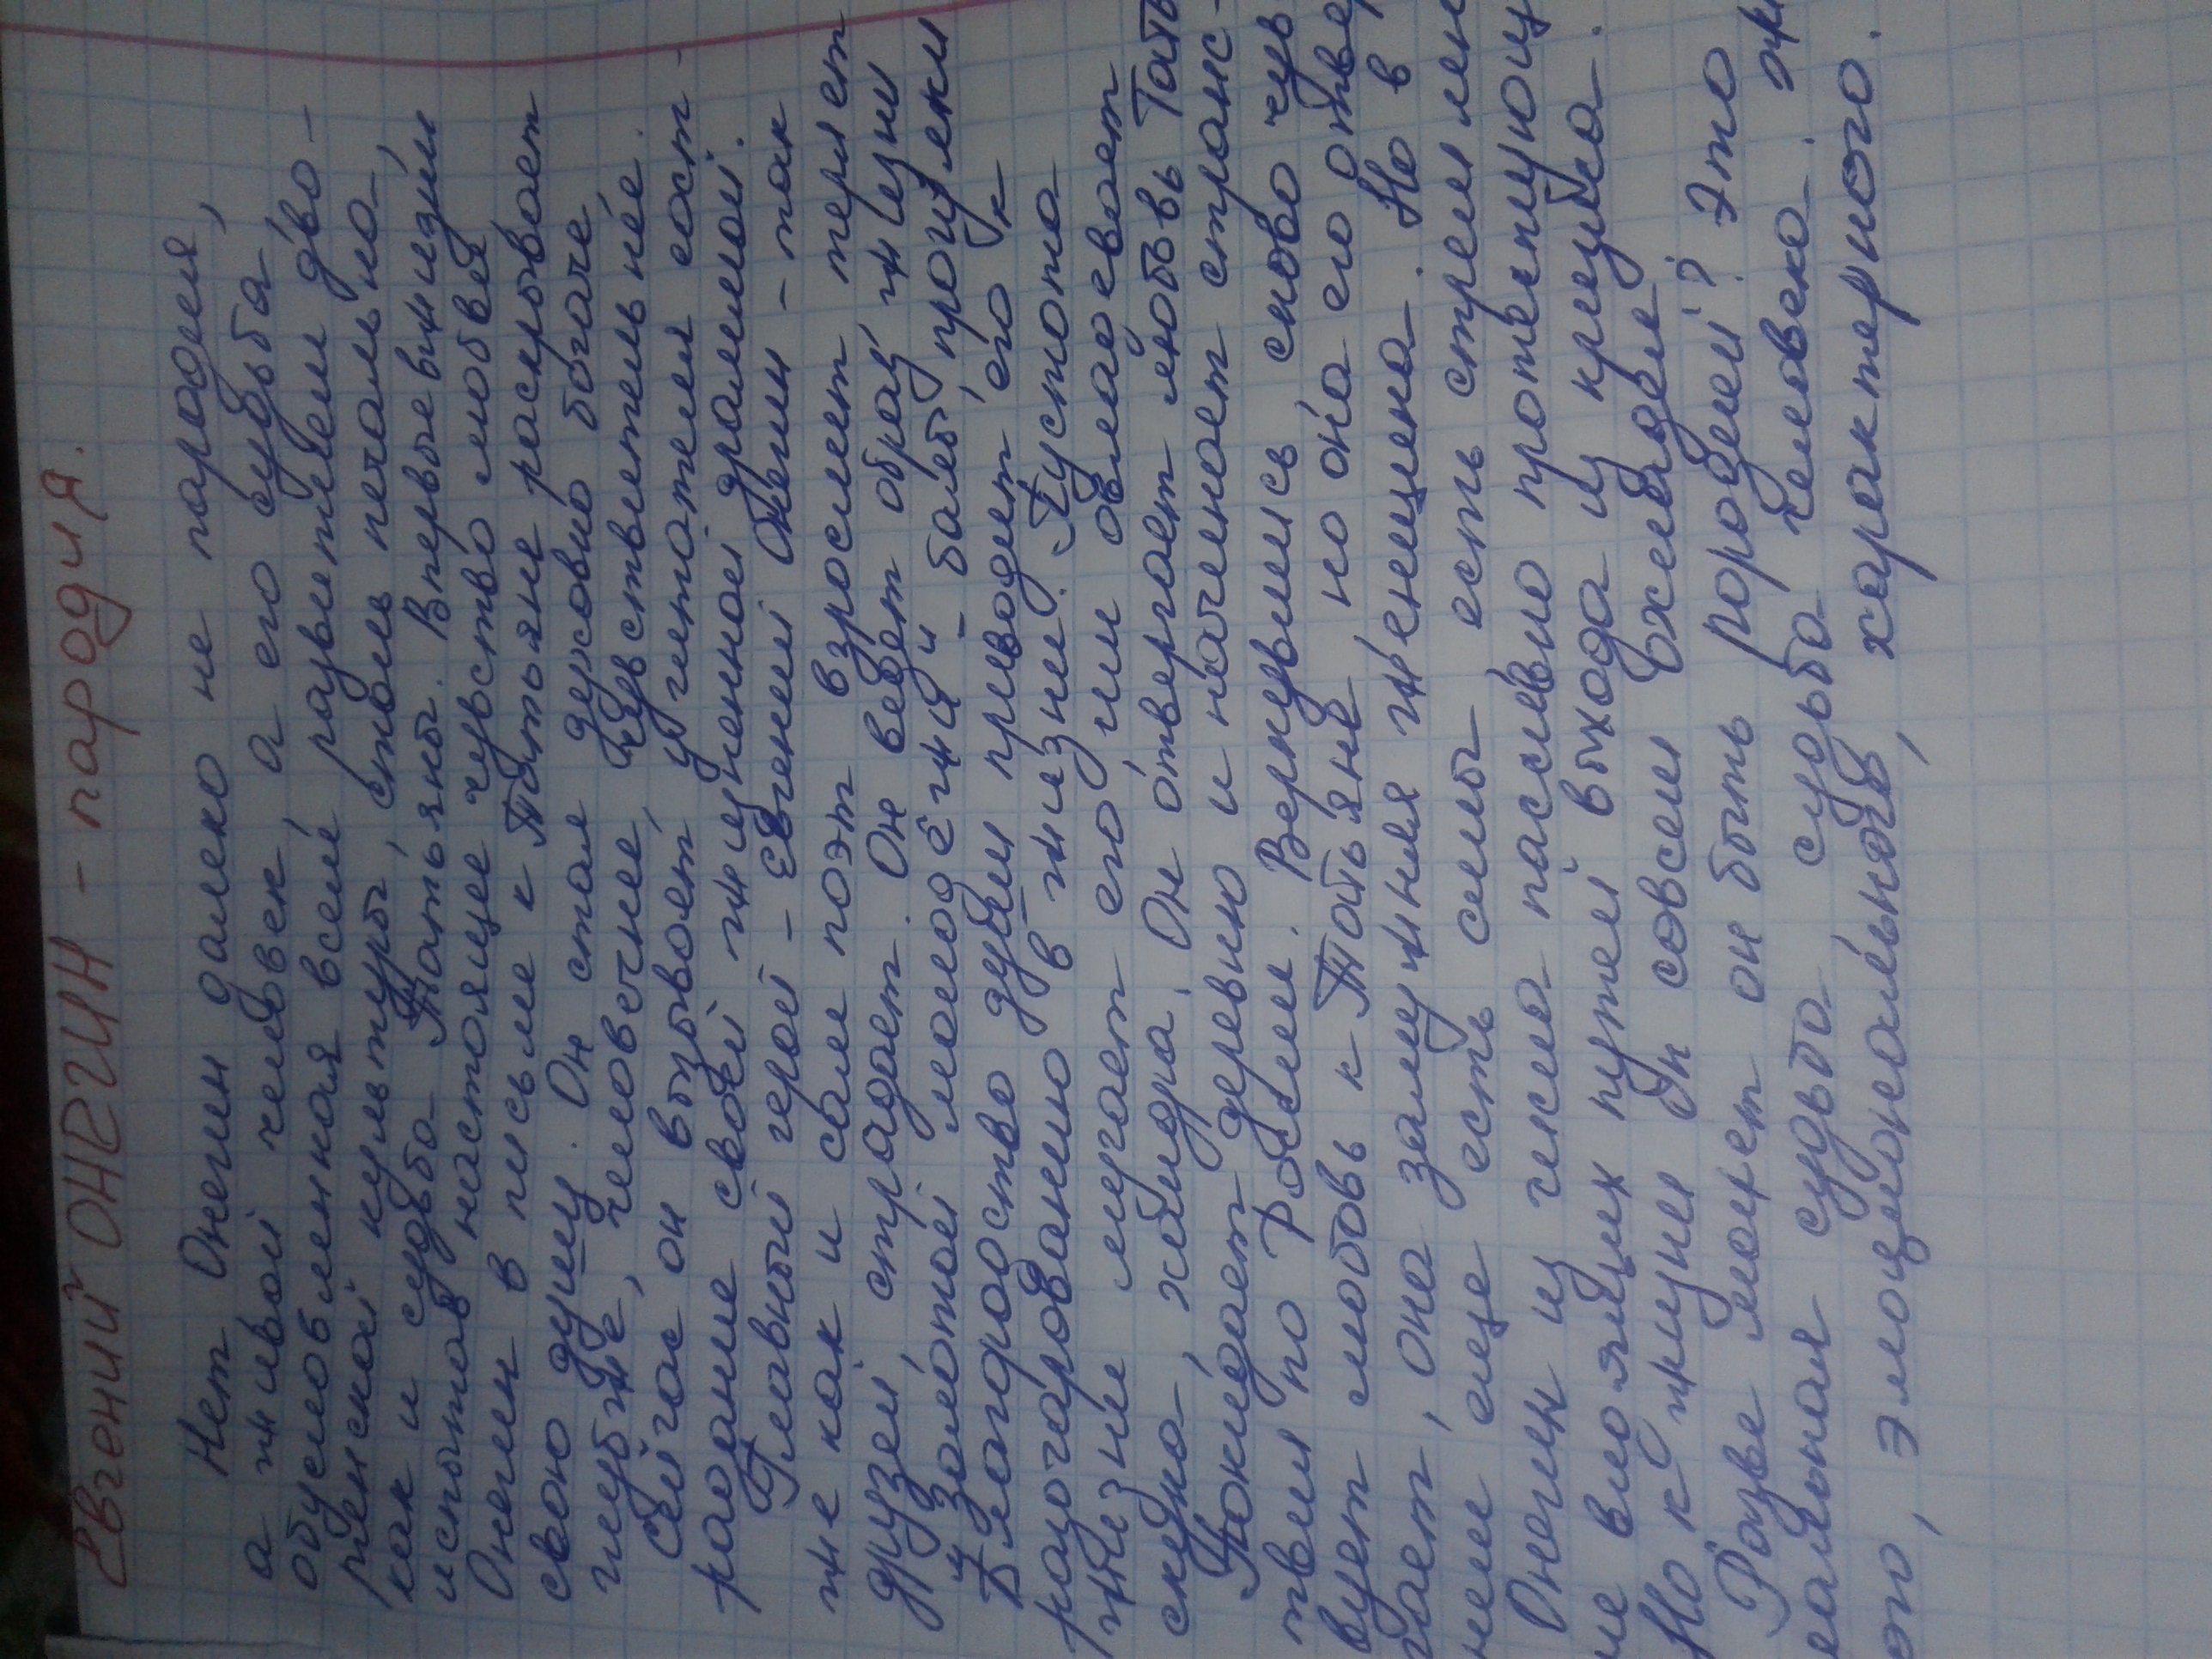 Евгений ОНЕГИН - пародия.
Нет Онегин далеко не пародия,
а живой человек, а его судьба
обусловленная всем развитием дво-
рянской культуры, столь печальна,
как и судьба Татьяны. Впервые в жизни
испытав настоящее чувство любвея
Онегин в письме к Татьяне раскрывает
свою душу. Он стал духовно богаче,
глубже, человечнее, чувствительнее.
Сейчас он вызывает у читателя сост-
радание своей жизненной драммой.
Главный герой - Евгений Онегин - так
же как и сам поэт взрослит, теряет
друзей, страдает. Он ведет образ жизни
золотой молодёжи - балы, прогулки
Благородство души приводит его к
разочарованию в жизни. Пустота
жизни мучает его им овлаевает
скука, хандра. Он отвергает любовь Тать
Покидает деревню и начинает странс-
твия по Росии. Вернувшись снова чув
вует любовь к Татьяне, но она его отвер
гает, она замужняя женщина. Но в
нем еще есть силы есть стремлен
Онегин из числа пассивно протестующ
не видящих путей выхода из кризиса.
Но к жизни Он совсем охладел
Разве может он быть пародией? Это
еальная судьба судьба человека. жи
го, эмоционального, характерного.